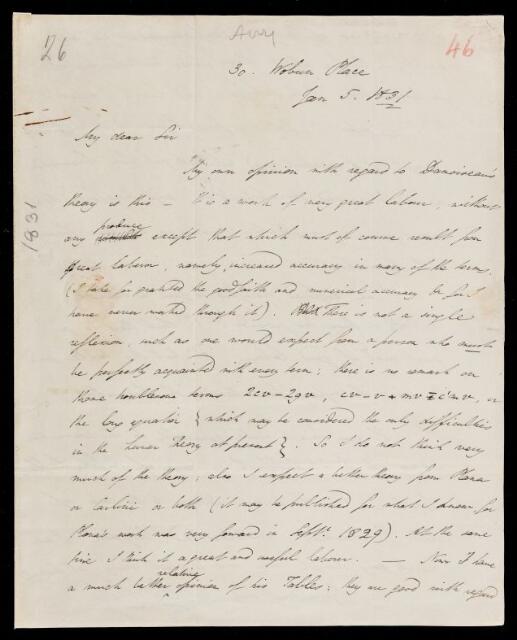 26
Airy
46
30. Woburn Place
Jan 5. 1831
My dear Sir
My own opinion with regard to Damoiseau's
theory is this – It is a work of very great labour, without
produce
any except that which must of course result from
great labour, namely, increased accuracy in many of the terms.
(I take for granted the good faith and numerical accuracy for I
have never worked through it). There is not a single
reflexion, such as one would expect from a person who must
be perfectly acquainted with every term; there is no remark on
those troublesome terms 2cv – 2gv, cv – v + mv c'mv, or
the long equation { which may be considered the only difficulties
in the Lunar Theory at present }. So I do not think very
much of the theory; also I expect a better theory from Plana
or Carlini or both (it may be published for what I know for
Plana's work was very forward in Septr. 1829). At the same
time I think it a great and useful labour. — Now I have
relative
a much better opinion of his Tables: they are good with regard
1831